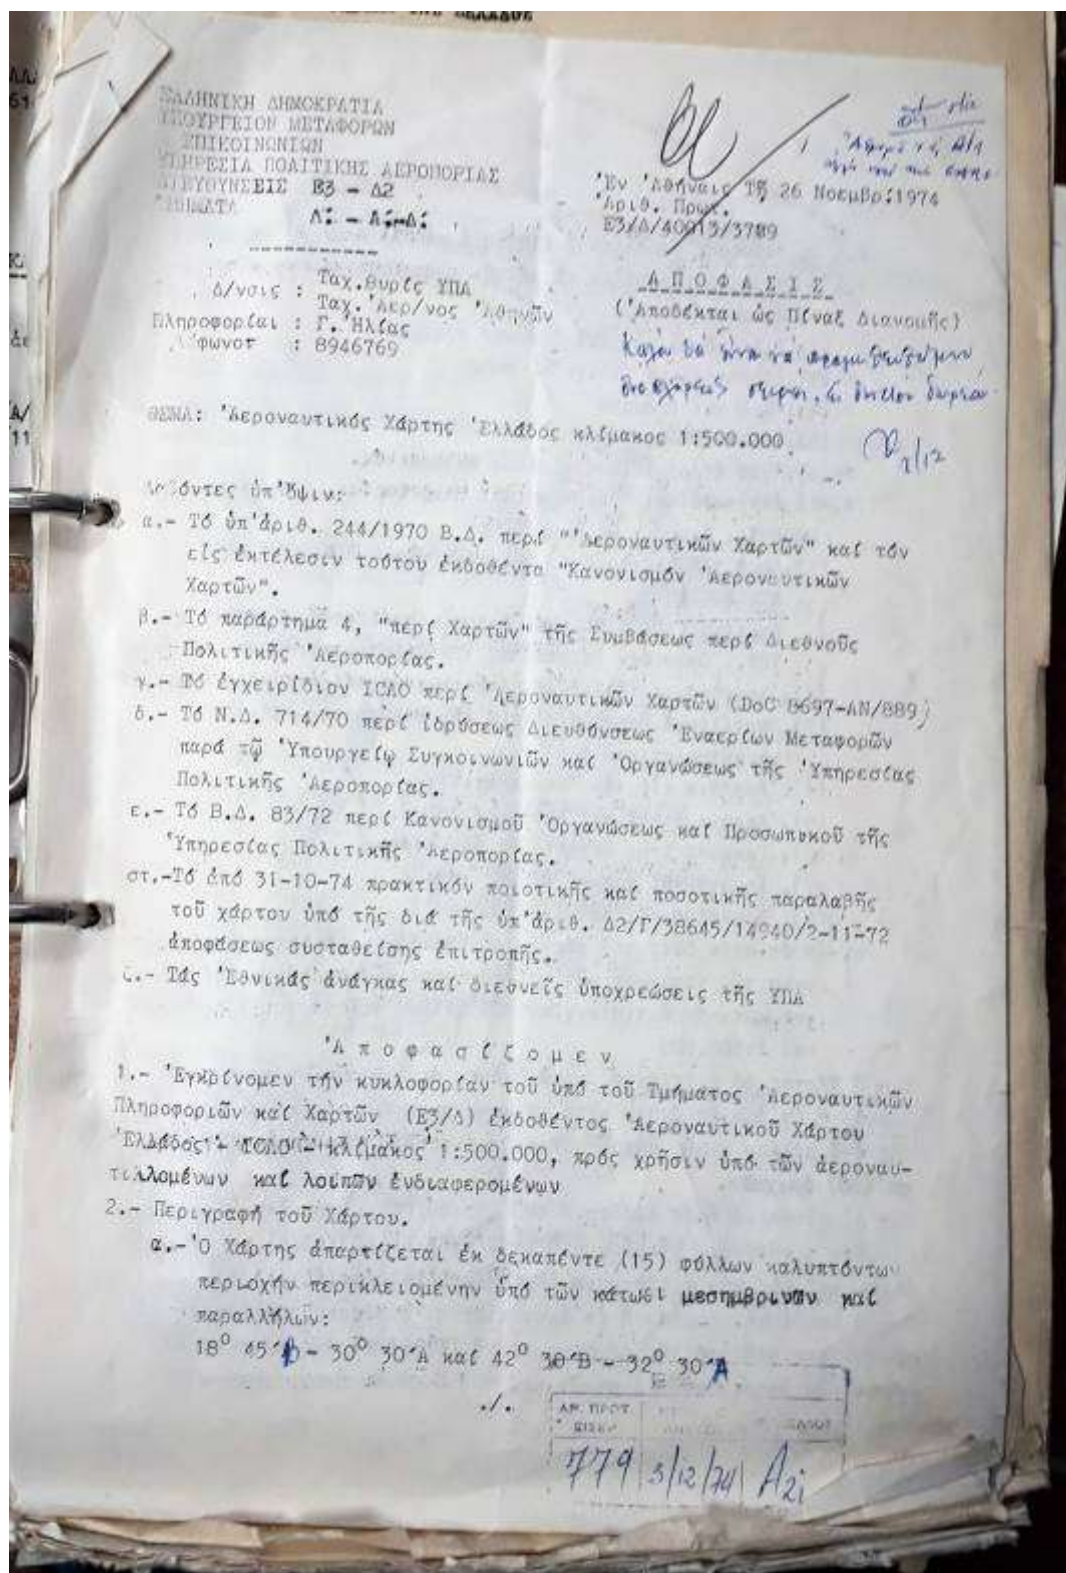 ΕΛΛΗΝΙΚΗ ΔΗΜΟΚΡΑΤΙΑ
ΥΠΟΥΡΓΕΙΟΝ ΜΕΤΑΦΟΡΩΝ
ΕΠΙΚΟΙΝΩΝΙΩΝ
ΥΠΗΡΕΣΙΑ ΠΟΛΙΤΙΚΗΣ ΑΕΡΟΠΟΡΙΑΣ
ΔΙΕΥΘΥΝΣΕΙΣ Ε3 - Δ2
ΤΜΗΜΑΤΑ
Ἐν Ἀθήναις τῇ 26 Νοεμβρ:1974
Ἀριθ. Πρωτ.
Ε3/Δ/40013/3789
------------
Δ/νσις : Ταχ.θυρίς ΥΠΑ
Ταχ.Ἀερ/νος Ἀθηνῶν
Πληροφορίαι : Γ. Ἠλίας
φωνον : 8946769
Α Π Ο Φ Α Σ Ι Σ
(Ἀποδέκται ὡς Πίναξ Διανομῆς)
ΘΕΜΑ: Ἀεροναυτικός Χάρτης Ἑλλάδος κλίμακος 1:500.000.
2/12
ὑπ'ὄψιν:
α.- Τό ὑπ'ἀριθ. 244/1970 Β.Δ. περί "Ἀεροναυτικῶν Χαρτῶν" καί τόν
εἰς ἐκτέλεσιν τούτου ἐκδοθέντα "Κανονισμόν Ἀεροναυτικῶν
Χαρτῶν".
β.- Τό παράρτημα 4, "περί Χαρτῶν" τῆς Συμβάσεως περί Διεθνοῦς
Πολιτικῆς Ἀεροπορίας.
γ.- Τό ἐγχειρίδιον ICAO περί Ἀεροναυτικῶν Χαρτῶν (DoC 8697-AN/889)
δ.- Τό Ν.Δ. 714/70 περί ἱδρύσεως Διευθύνσεως Ἐναερίων Μεταφορῶν
παρά τῷ Ὑπουργείῳ Συγκοινωνιῶν καί Ὀργανώσεως τῆς Ὑπηρεσίας
Πολιτικῆς Ἀεροπορίας.
ε.- Τό Β.Δ. 83/72 περί Κανονισμοῦ Ὀργανώσεως καί Προσωπικοῦ τῆς
Ὑπηρεσίας Πολιτικῆς Ἀεροπορίας.
στ.-Τό ἀπό 31-10-74 πρακτικόν ποιοτικῆς καί ποσοτικῆς παραλαβῆς
τοῦ χάρτου ὑπό τῆς διά τῆς ὑπ'ἀριθ. Δ2/Γ/38645/14940/2-11-72
ἀποφάσεως συσταθείσης ἐπιτροπῆς.
ζ.- Τάς Ἐθνικάς ἀνάγκας καί διεθνεῖς ὑποχρεώσεις τῆς ΥΠΑ
Ἀ π ο φ α σ ί ζ ο μ ε ν
1.- Ἐγκρίνομεν τήν κυκλοφορίαν τοῦ ὑπό τοῦ Τμήματος Ἀεροναυτικῶν
Πληροφοριῶν καί Χαρτῶν (Ε3/Δ) ἐκδοθέντος Ἀεροναυτικοῦ Χάρτου
Ἑλλάδος - ICAO - κλίμακος 1:500.000, πρός χρῆσιν ὑπό τῶν ἀεροναυ-
τιλλομένων καί λοιπῶν ἐνδιαφερομένων
2.- Περιγραφή τοῦ Χάρτου.
α.-Ὁ Χάρτης ἀπαρτίζεται ἐκ δεκαπέντε (15) φύλλων καλυπτόντων
περιοχήν περικλειομένην ὑπό τῶν κάτωθι μεσημβρινῶν καί
παραλλήλων:
18⁰ 45´ - 30⁰ 30´Α καί 42⁰ 30´Β - 32⁰ 30´Α
./.
ΑΡ. ΠΡΩΤ.
779 3/12/74 Α2i